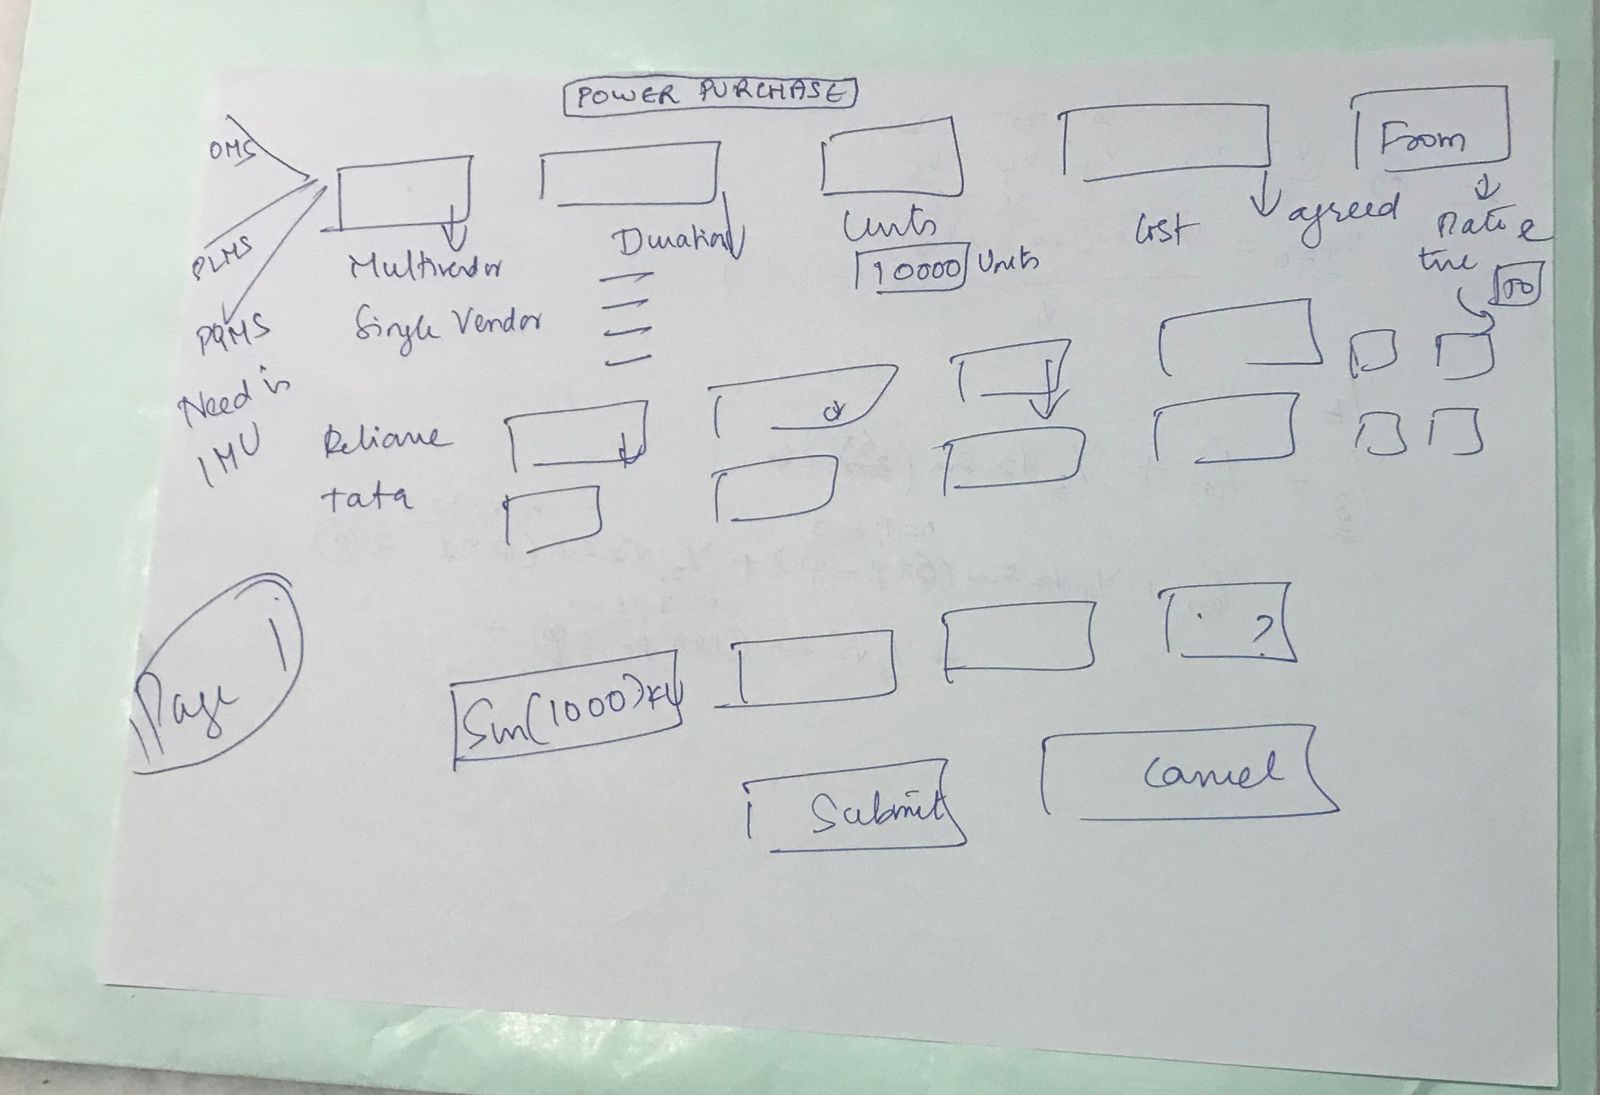 POWER PURCHASE
OMS
PLMS
PQMS
Need in
IMU
Multivendor
Single Vendor
Duration
Units
10000 Units
Cost
agreed
From
Reliance
tata
Page 1
?
Submit
Cancel